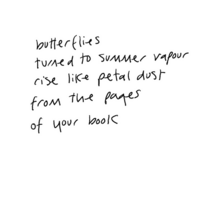 butterflies
turned to summer vapour
rise like petal dust
from the pages
of your book